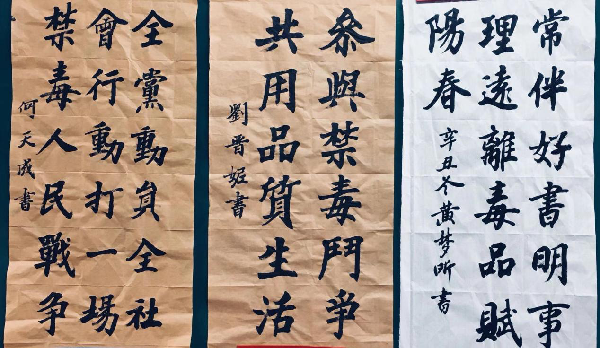 常伴好書明事
理遠離毒品賦
陽春
辛丑冬黄梦昕書
叅與禁毒鬥爭
共用品質生活
劉晋姬書
全黨動貟全社
會行動打一場
禁毒人民戰争
何天成書